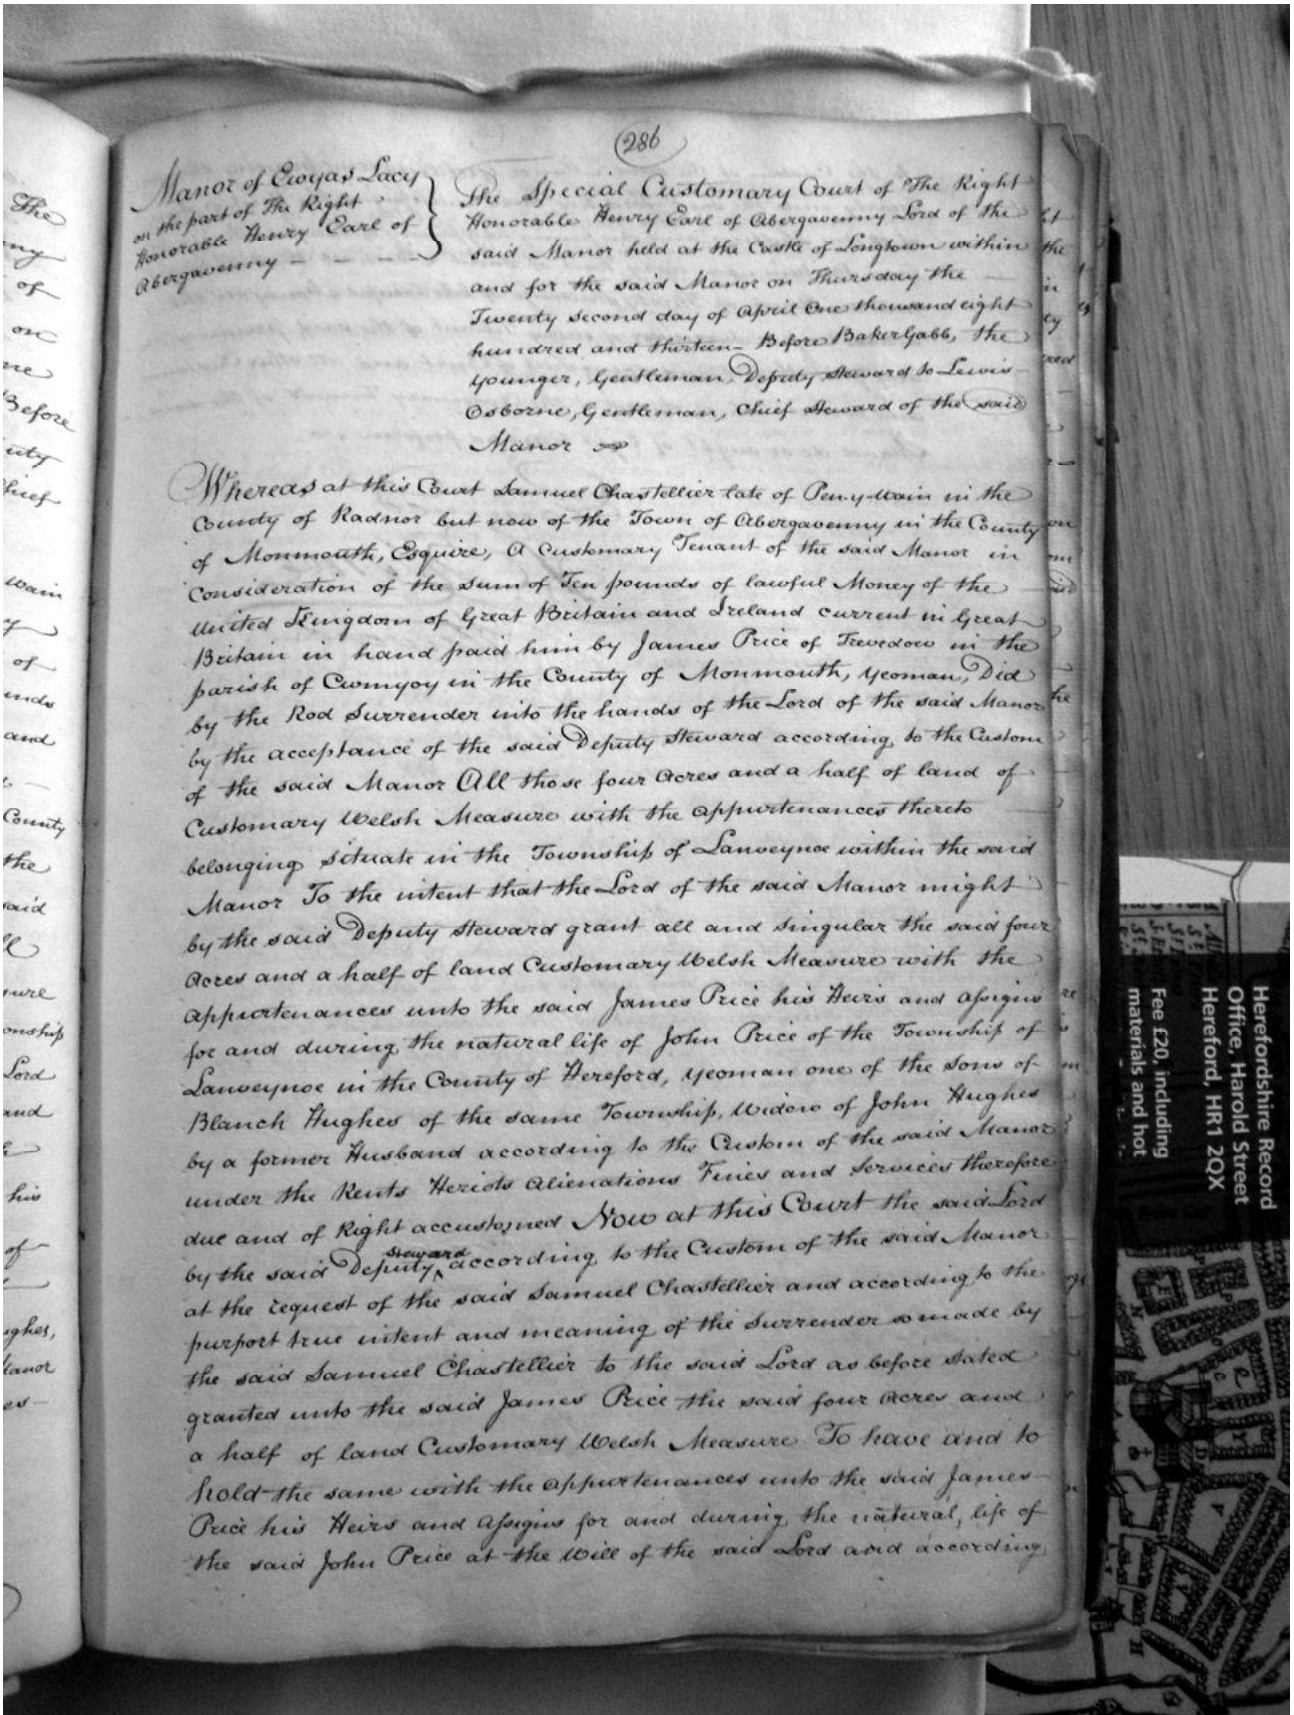 286
Manor of Ewyas Lacy
on the part of The Right
Honorable Henry Earl of
Abergavenny
The Special Customary Court of The Right
Honorable Henry Earl of Abergavenny Lord of the
said Manor held at the Castle of Longtown within
and for the said Manor on Thursday the
Twenty second day of April One thousand eight
hundred and thirteen - Before Baker Gabb, the
younger, Gentleman, Deputy Steward to Lewis
Osborne, Gentleman, Chief Steward of the said
Manor
Whereas at this Court Samuel Chastellier late of Pen-y-wain in the
County of Radnor but now of the Town of Abergavenny in the County
of Monmouth, Esquire, A Customary Tenant of the said Manor in
Consideration of the Sum of Ten pounds of lawful Money of the
United Kingdom of Great Britain and Ireland current in Great
Britain in hand paid him by James Price of Trevedow in the
parish of Cwmyoy in the County of Monmouth, yeoman, Did
by the Rod Surrender into the hands of the Lord of the said Manor
by the acceptance of the said Deputy Steward according to the Custom
of the said Manor All those four Acres and a half of land of
Customary Welsh Measure with the appurtenances thereto
belonging situate in the Township of Lanveynoe within the said
Manor To the intent that the Lord of the said Manor might
by the said Deputy Steward grant all and singular the said four
Acres and a half of land Customary Welsh Measure with the
appurtenances unto the said James Price his Heirs and assigns
for and during the natural life of John Price of the Township of
Lanveynoe in the County of Hereford, yeoman one of the Sons of
Blanch Hughes of the same Township, Widow of John Hughes
by a former Husband according to the Custom of the said Manor
under the Rents Heriots Alienations Fines and Services therefore
due and of Right accustomed Now at this Court the said Lord
by the said Deputy steward according to the Custom of the said Manor
at the request of the said Samuel Chastellier and according to the
purport true intent and meaning of the Surrender so made by
the said Samuel Chastellier to the said Lord as before stated
granted unto the said James Price the said four Acres and
a half of land Customary Welsh Measure To have and to
hold the same with the appurtenances unto the said James
Price his Heirs and Assigns for and during the natural life of
the said John Price at the Will of the said Lord and according
The
my
of
on
Before
uty
hief
wain
of
and
County
the
said
sure
onship
Lord
and
his
of
ughes,
Manor
Herefordshire Record
Office, Harold Street
Hereford, HR1 2QX
Fee £20, including
materials and hot